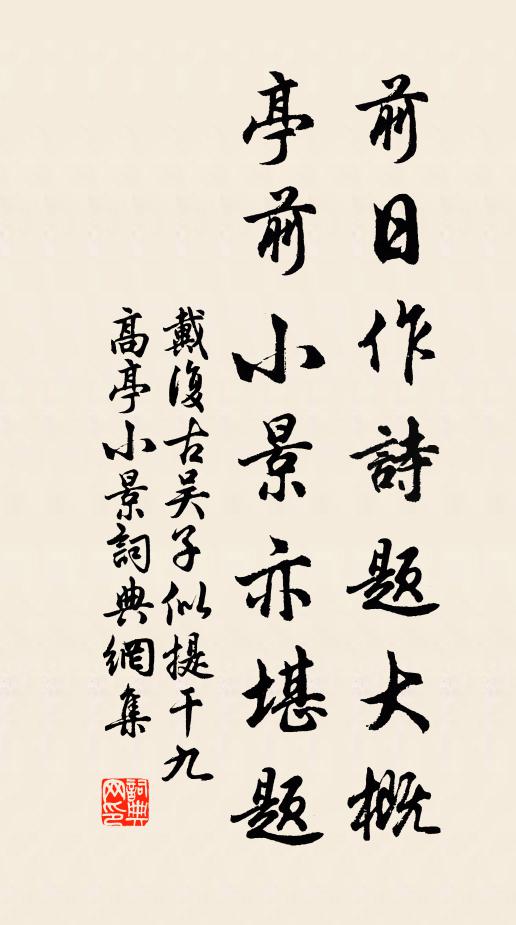 前日作詩題大概
亭前小景亦堪題
戴復古吴子似提干九
高亭小景詞典網集
詞典
网印